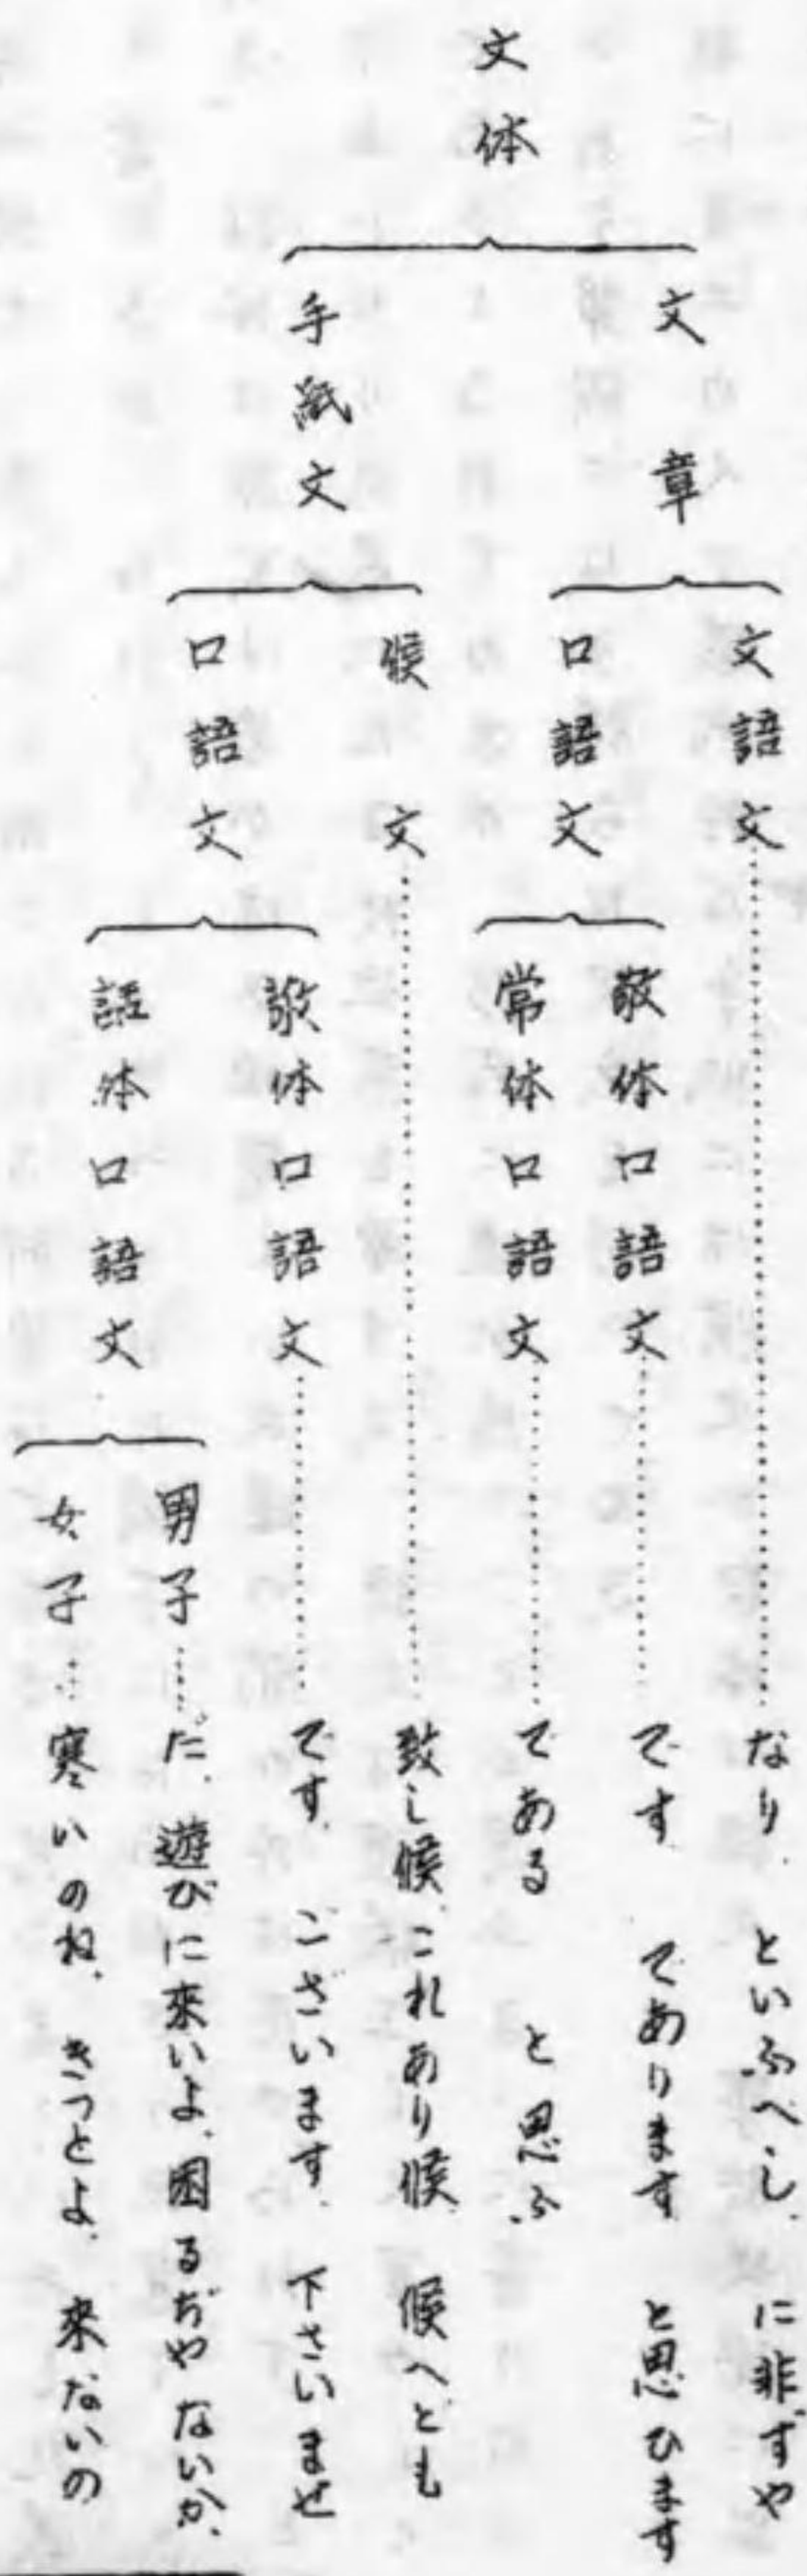 文体
文章
文語文……なり、といふべし、に非ずや
口語文
敬体口語文……です　であります　と思ひます
常体口語文……である　と思ふ
手紙文
候文……致し候、これあり候、候へども
口語文
敬体口語文……です、ございます、下さいませ
話体口語文
男子……だ、遊びに來いよ、困るぢやないか、
女子……寒いのね、きつとよ、來ないの